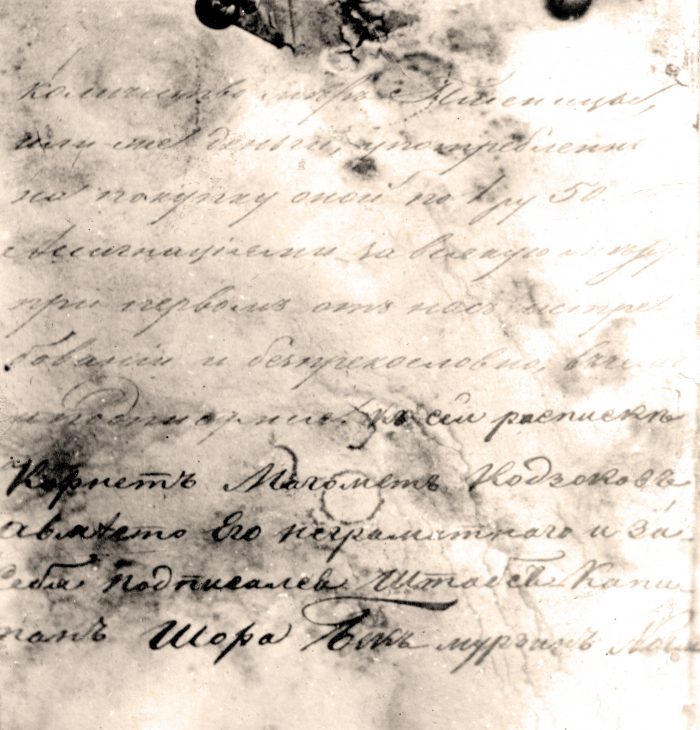 количество мѣръ Пшеницы,
или же деньги, употребленн
на покупку оной по 1 ру 50
Ассигнаціями за всякую мѣру
при первомъ отъ насъ истре
бованіи и безпрекословно, въ чемъ
и подписуемся. Къ сей роспискѣ
Корнетъ Магометъ Кодзоковъ
авмѣсто Его неграматнаго и за
себя подписался Штабсъ Капи
танъ Шора Бекъ мурзинъ